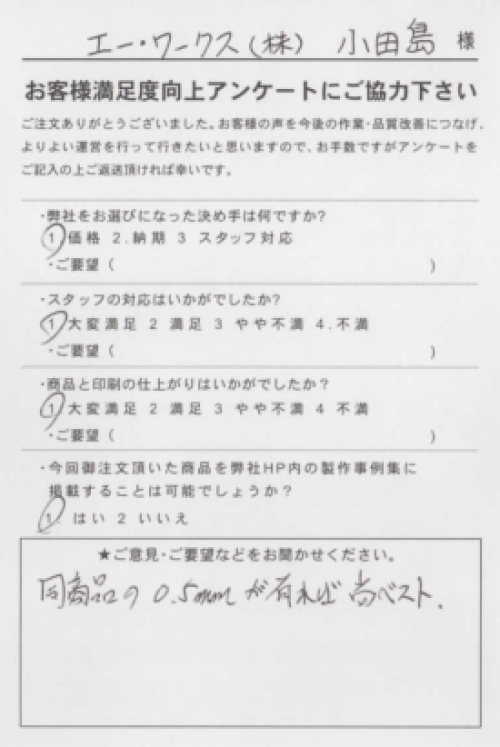 エー・ワークス(株) 小田島 様
お客様満足度向上アンケートにご協力下さい
ご注文ありがとうございました。お客様の声を今後の作業・品質改善につなげ、
よりよい運営を行って行きたいと思いますので、お手数ですがアンケートを
ご記入の上ご返送頂ければ幸いです。
・弊社をお選びになった決め手は何ですか?
1 価格 2.納期 3 スタッフ対応
・ご要望( )
・スタッフの対応はいかがでしたか?
1 大変満足 2 満足 3 やや不満 4.不満
・ご要望( )
・商品と印刷の仕上がりはいかがでしたか?
1 大変満足 2 満足 3 やや不満 4 不満
・ご要望( )
・今回御注文頂いた商品を弊社HP内の製作事例集に
掲載することは可能でしょうか?
1. はい 2 いいえ
★ご意見・ご要望などをお聞かせください。
同商品の 0.5mmが有れば尚ベスト.